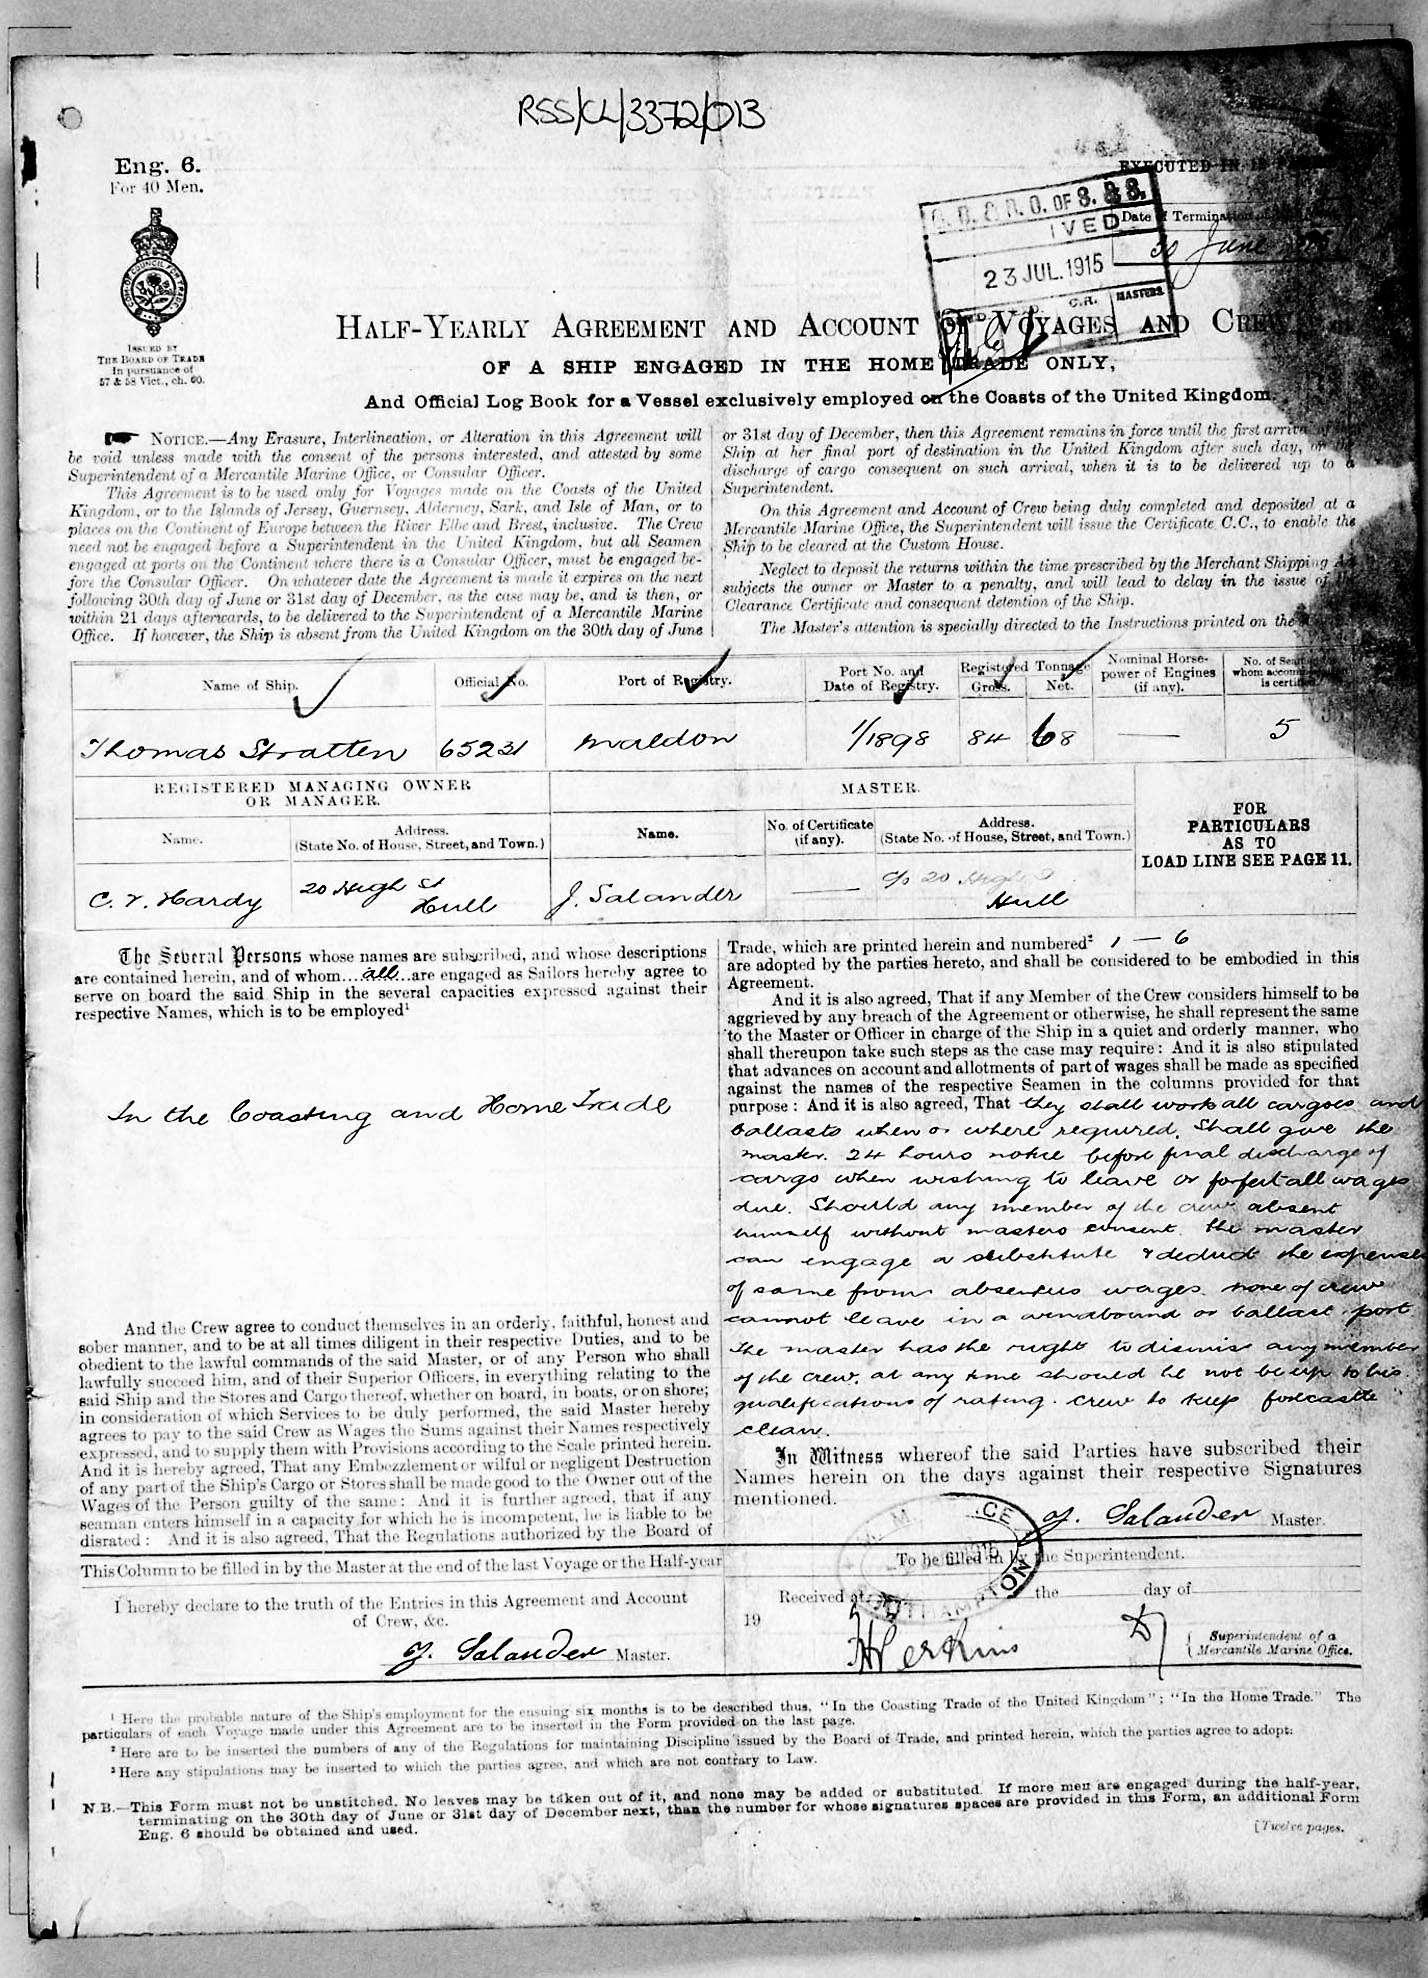 RSS/CL/3372/013
Eng. 6.
For 40 Men.
ISSUED BY
THE BOARD OF TRADE
In pursuance of
57 & 58 Vict., ch. 60.
EXECUTED IN
Date of Termination
30 June
OF S. & S.
IVED
23 JUL. 1915
C.R.
MASTERS
HALF-YEARLY AGREEMENT AND ACCOUNT OF VOYAGES AND CREW
OF A SHIP ENGAGED IN THE HOME TRADE ONLY,
And Official Log Book for a Vessel exclusively employed on the Coasts of the United Kingdom.
NOTICE.—Any Erasure, Interlineation, or Alteration in this Agreement will
be void unless made with the consent of the persons interested, and attested by some
Superintendent of a Mercantile Marine Office, or Consular Officer.
This Agreement is to be used only for Voyages made on the Coasts of the United
Kingdom, or to the Islands of Jersey, Guernsey, Alderney, Sark, and Isle of Man, or to
places on the Continent of Europe between the River Elbe and Brest, inclusive. The Crew
need not be engaged before a Superintendent in the United Kingdom, but all Seamen
engaged at ports on the Continent where there is a Consular Officer, must be engaged be-
fore the Consular Officer. On whatever date the Agreement is made it expires on the next
following 30th day of June or 31st day of December, as the case may be, and is then, or
within 21 days afterwards, to be delivered to the Superintendent of a Mercantile Marine
Office. If however, the Ship is absent from the United Kingdom on the 30th day of June
or 31st day of December, then this Agreement remains in force until the first arrival of
Ship at her final port of destination in the United Kingdom after such day, or the
discharge of cargo consequent on such arrival, when it is to be delivered up to a
Superintendent.
On this Agreement and Account of Crew being duly completed and deposited at a
Mercantile Marine Office, the Superintendent will issue the Certificate C.C., to enable the
Ship to be cleared at the Custom House.
Neglect to deposit the returns within the time prescribed by the Merchant Shipping
subjects the owner or Master to a penalty, and will lead to delay in the issue of
Clearance Certificate and consequent detention of the Ship.
The Master's attention is specially directed to the Instructions printed on the
Name of Ship. Official No. Port of Registry. Port No. and Date of Registry. Registered Tonnage Gross. Net. Nominal Horse-power of Engines (if any). No. of Seamen whom accommodation is certified.
Thomas Stratten 65231 Maldon 1/1898 84 68 — 5
REGISTERED MANAGING OWNER
OR MANAGER.
MASTER.
Name. Address. (State No. of House, Street, and Town.) Name. No. of Certificate (if any). Address. (State No. of House, Street, and Town.)
FOR
PARTICULARS
AS TO
LOAD LINE SEE PAGE 11.
C. V. Hardy 20 High St Hull J. Salander — c/o 20 High St Hull
The Several Persons whose names are subscribed, and whose descriptions
are contained herein, and of whom...all...are engaged as Sailors hereby agree to
serve on board the said Ship in the several capacities expressed against their
respective Names, which is to be employed¹
In the Coasting and Home Trade
And the Crew agree to conduct themselves in an orderly, faithful, honest and
sober manner, and to be at all times diligent in their respective Duties, and to be
obedient to the lawful commands of the said Master, or of any Person who shall
lawfully succeed him, and of their Superior Officers, in everything relating to the
said Ship and the Stores and Cargo thereof, whether on board, in boats, or on shore;
in consideration of which Services to be duly performed, the said Master hereby
agrees to pay to the said Crew as Wages the Sums against their Names respectively
expressed, and to supply them with Provisions according to the Scale printed herein.
And it is hereby agreed, That any Embezzlement or wilful or negligent Destruction
of any part of the Ship's Cargo or Stores shall be made good to the Owner out of the
Wages of the Person guilty of the same: And it is further agreed, that if any
seaman enters himself in a capacity for which he is incompetent, he is liable to be
disrated: And it is also agreed, That the Regulations authorized by the Board of
Trade, which are printed herein and numbered² 1 — 6
are adopted by the parties hereto, and shall be considered to be embodied in this
Agreement.
And it is also agreed, That if any Member of the Crew considers himself to be
aggrieved by any breach of the Agreement or otherwise, he shall represent the same
to the Master or Officer in charge of the Ship in a quiet and orderly manner, who
shall thereupon take such steps as the case may require: And it is also stipulated
that advances on account and allotments of part of wages shall be made as specified
against the names of the respective Seamen in the columns provided for that
purpose: And it is also agreed, That they shall work all cargoes and
ballasts when or where required. Shall give the
master. 24 hours notice before final discharge of
cargo when wishing to leave or forfeit all wages
due. Should any member of the crew absent
himself without masters consent. the master
can engage a substitute & deduct the expenses
of same from absentees wages. none of crew
cannot leave in a windbound or ballast port
The master has the right to dismiss any member
of the crew. at any time should he not be up to his
qualifications of rating. crew to keep forecastle
clean.
In Witness whereof the said Parties have subscribed their
Names herein on the days against their respective Signatures
mentioned.
J. Salander Master.
This Column to be filled in by the Master at the end of the last Voyage or the Half-year
I hereby declare to the truth of the Entries in this Agreement and Account
of Crew, &c.
J. Salander Master.
To be filled in by the Superintendent.
Received at the day of
19
H Perkins
Superintendent of a
Mercantile Marine Office.
¹ Here the probable nature of the Ship's employment for the ensuing six months is to be described thus, "In the Coasting Trade of the United Kingdom"; "In the Home Trade." The
particulars of each Voyage made under this Agreement are to be inserted in the Form provided on the last page.
² Here are to be inserted the numbers of any of the Regulations for maintaining Discipline issued by the Board of Trade, and printed herein, which the parties agree to adopt.
³ Here any stipulations may be inserted to which the parties agree, and which are not contrary to Law.
N.B.—This Form must not be unstitched. No leaves may be taken out of it, and none may be added or substituted. If more men are engaged during the half-year,
terminating on the 30th day of June or 31st day of December next, than the number for whose signatures spaces are provided in this Form, an additional Form
Eng. 6 should be obtained and used.
[Twelve pages.